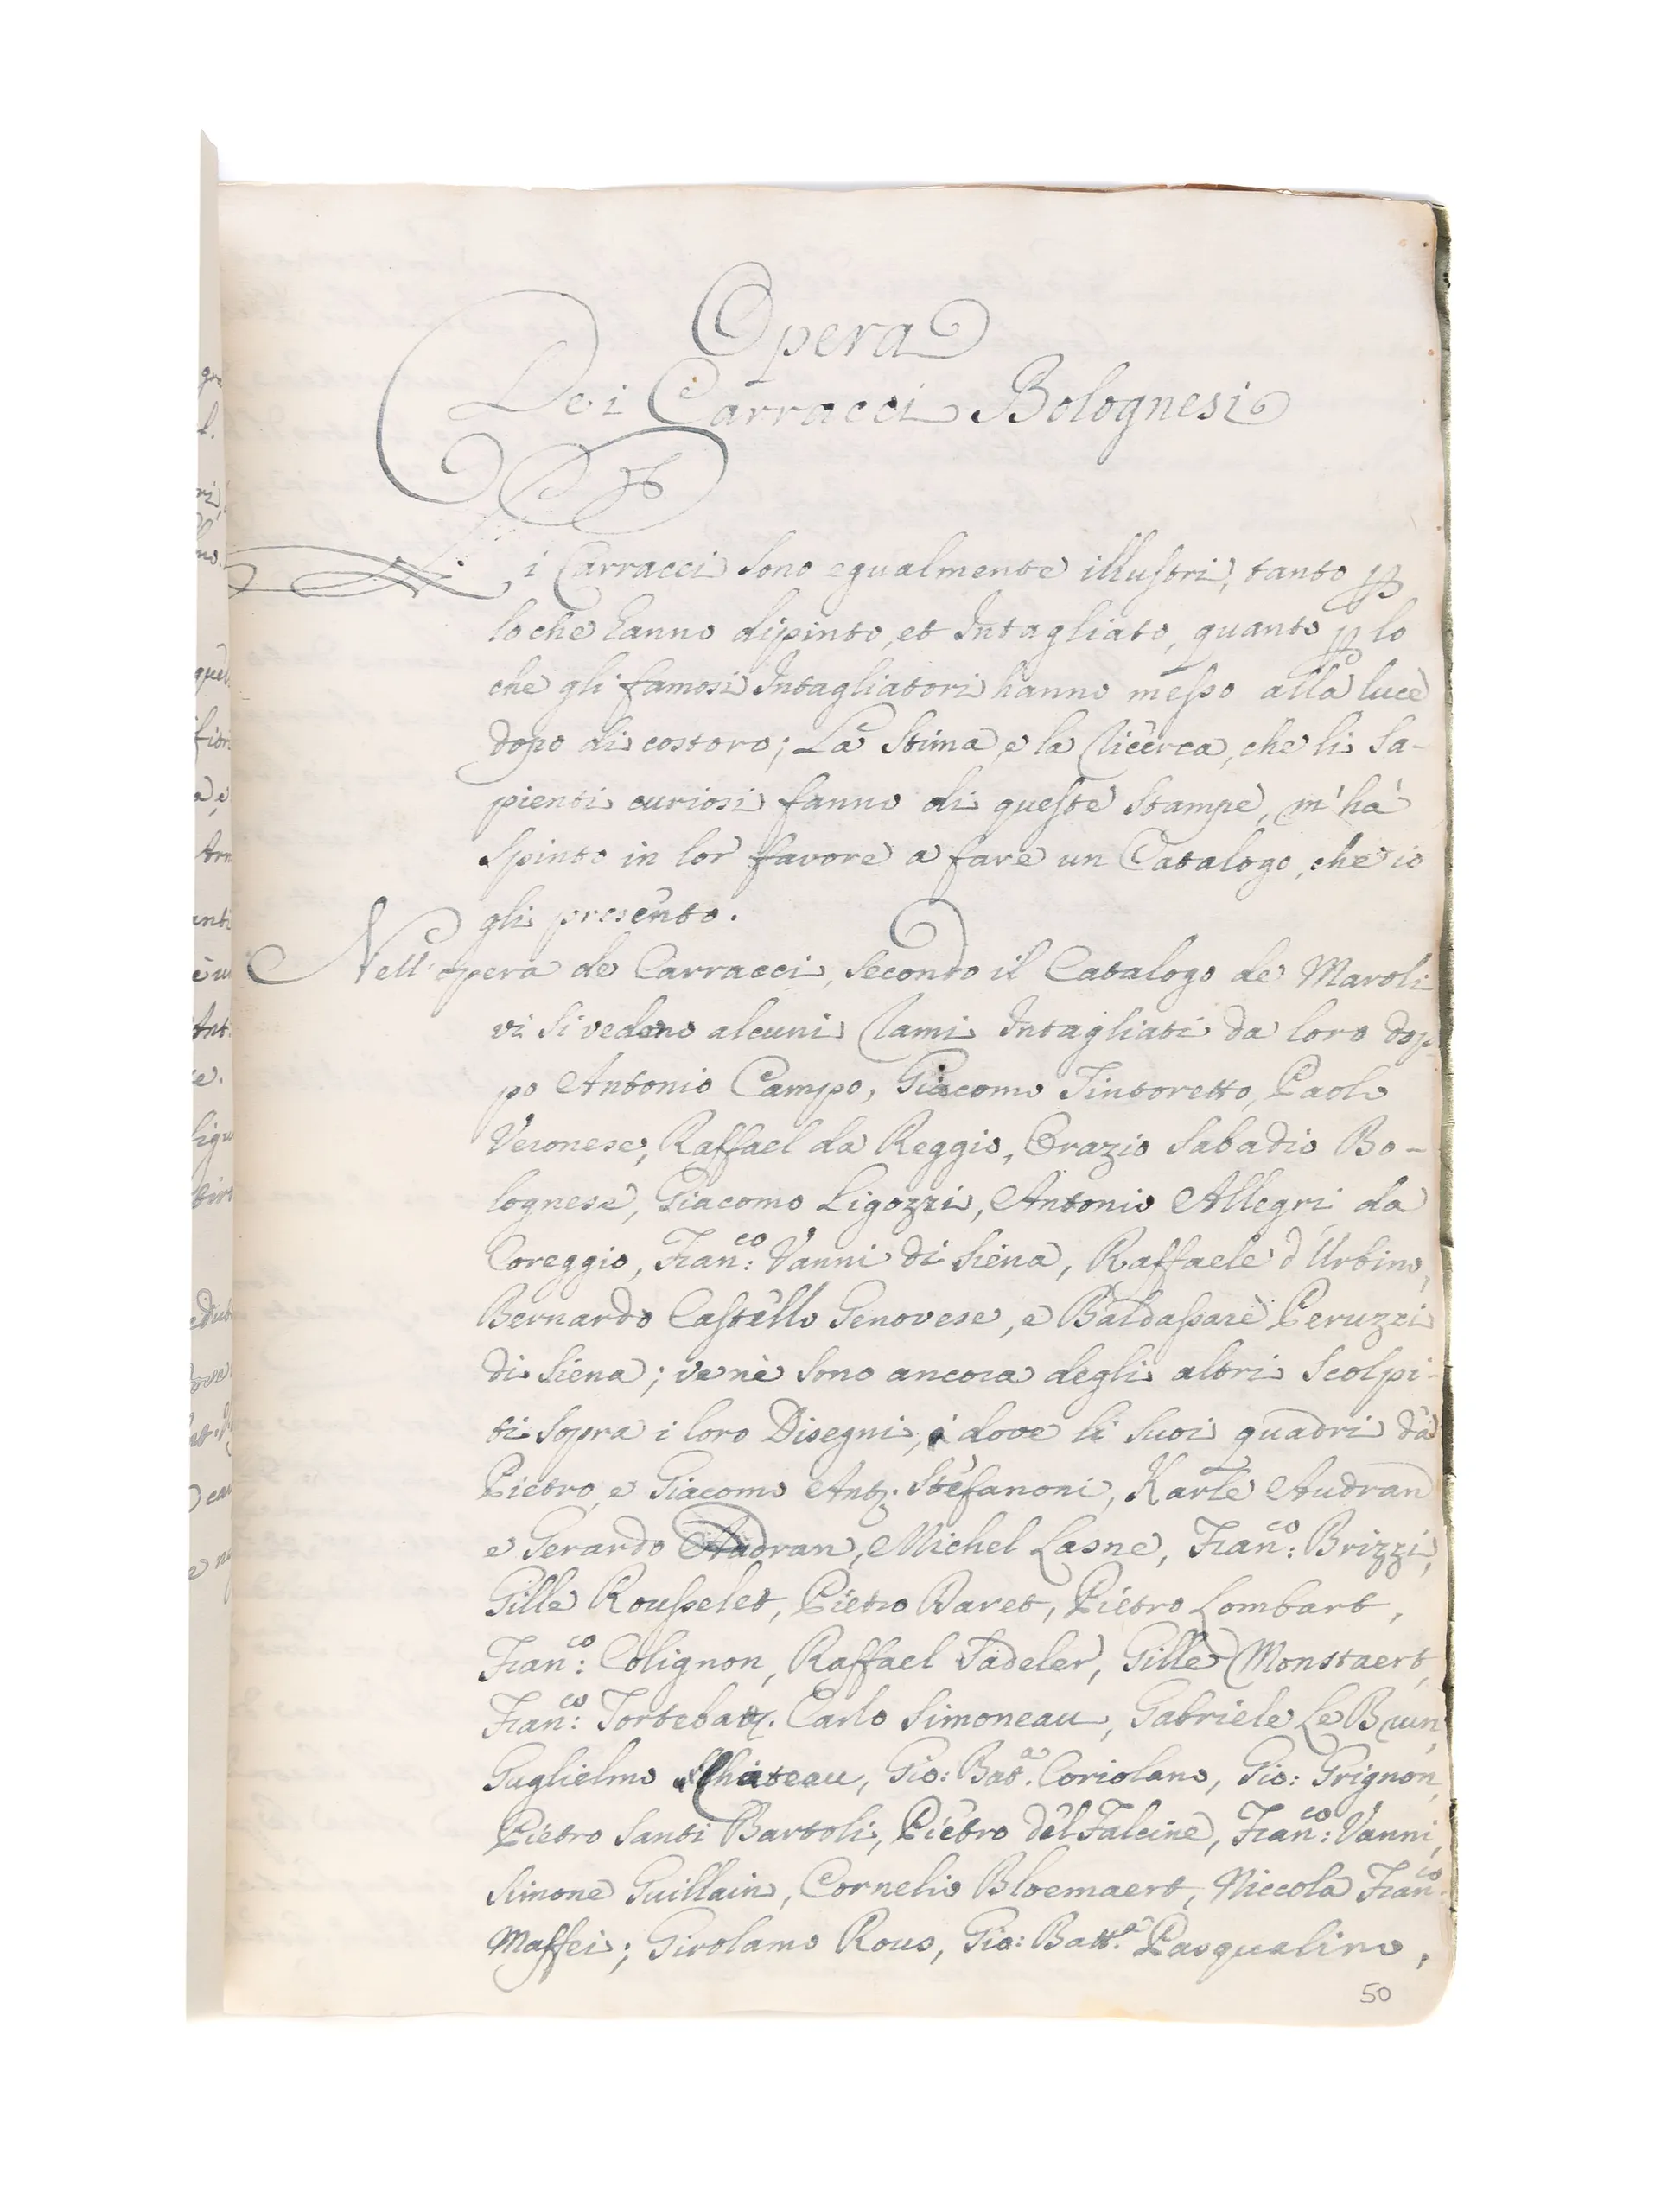 Opera
Dei Carracci Bolognesi
Li Carracci sono egualmente illustri, tanto ꝑ
lo che hanno dipinto, et Intagliato, quanto ꝑ lo
che gli famosi Intagliatori hanno messo alla luce
dopo di costoro; La stima, e la ricerca, che li sa-
pienti curiosi fanno di queste stampe, m'ha
spinto in lor favore a fare un Catalogo, che io
gli presento.
Nell'opera de Carracci, secondo il Catalogo de Maroli
vi si vedono alcuni rami Intagliati da loro dop-
po Antonio Campo, Giacomo Tintoretto, Paolo
Veronese, Raffael da Reggio, Orazio Sabadio Bo-
lognese, Giacomo Ligozzi, Antonio Allegri da
Coreggio, Fran:co Vanni di Siena, Raffaele d'Urbino,
Bernardo Castello Genovese, e Baldassare Peruzzi
di Siena; vene sono ancora degli altri scolpi-
ti sopra i loro Disegni, dove li suoi quadri da
Pietro, e Giacomo Ant. Stefanoni, Karle Audran
e Gerardo Audran, Michel Lasne, Fran:co Brizzi,
Gille Rousselet, Pietro Daret, Pietro Lombart,
Fran:co Colignon, Raffael Sadeler, Gille Monstaert,
Fran:co Tortebat. Carlo Simoneau, Gabriele Le Brun,
Guglielmo Chateau, Gio: Bat.a Coriolano, Gio: Grignon,
Pietro Santi Bartoli, Pietro del Falcine, Fran:co Vanni,
Simone Guillain, Cornelio Bloemaert, Niccola Fran:co
Maffei; Girolamo Rous, Gio: Batt.a Pasqualino,
50